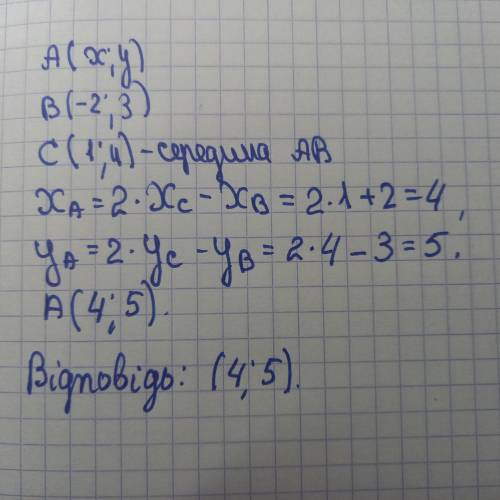 A(x;y)
B(-2;3)
C(1;4) - середина AB
x_A = 2·x_C - x_B = 2·1+2=4,
y_A = 2·y_C - y_B = 2·4-3=5.
A(4;5).
Відповідь: (4;5).